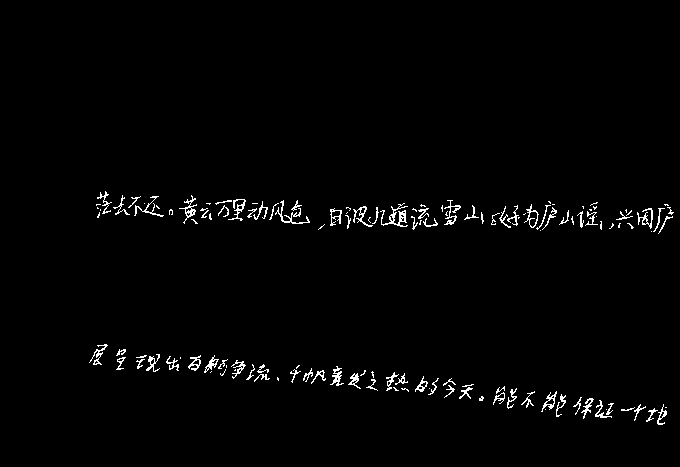 茫去不还。黄云万里动风色,白波九道流雪山。好为庐山谣,兴因庐
展呈现出百舸争流、千帆竞发之热的今天。能不能保证一个地